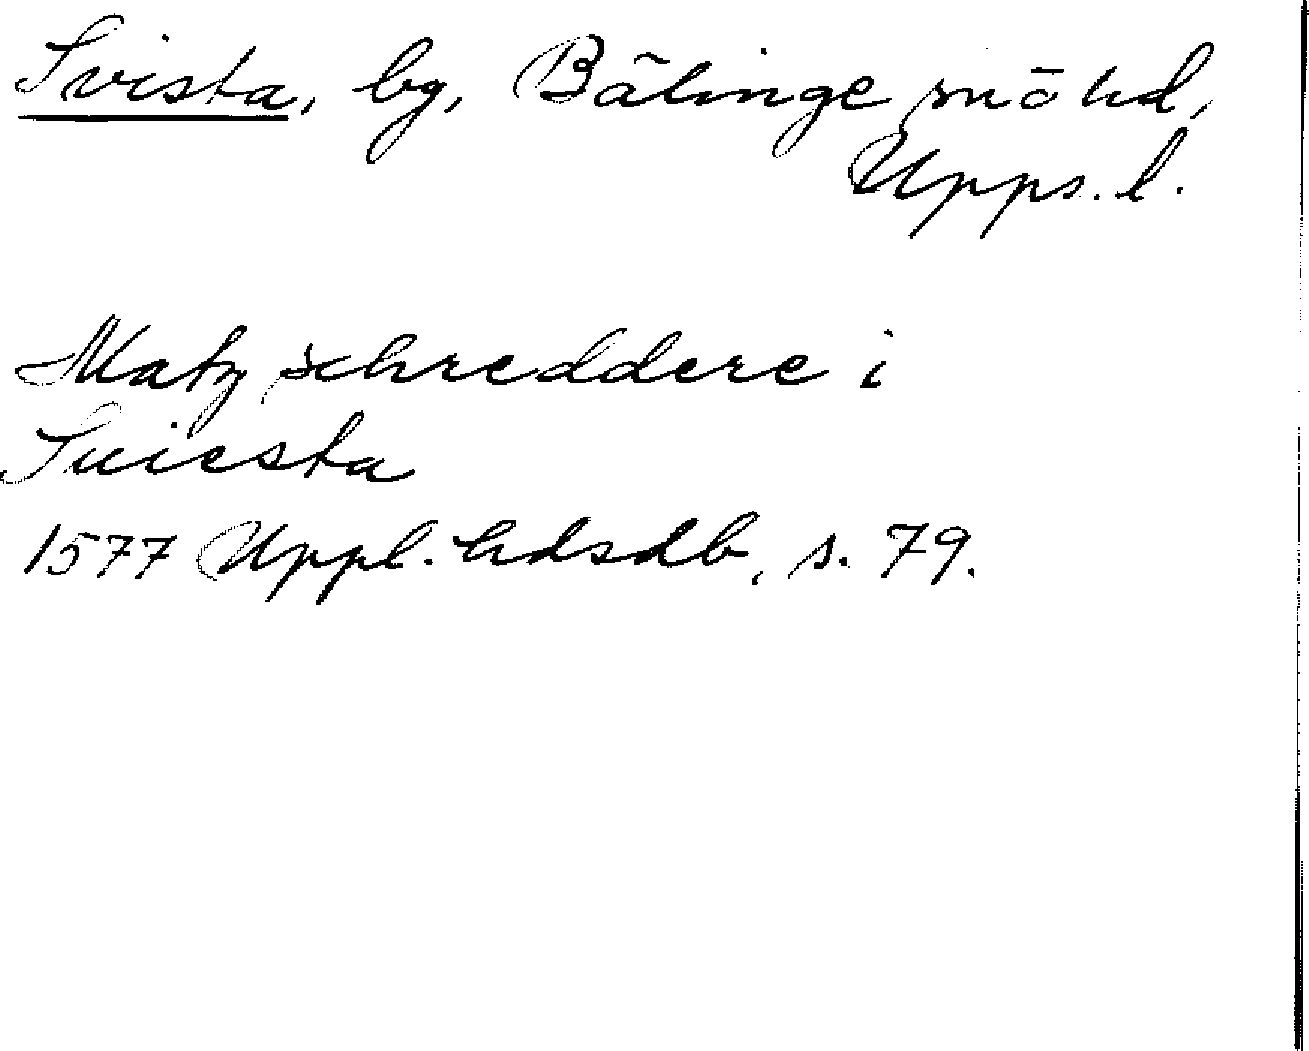 Svista, by, Bälinge sn ö hd,
Upps. l.
Matz schreddere i
Suiesta
1577 Uppl. hdsdb, s. 79.